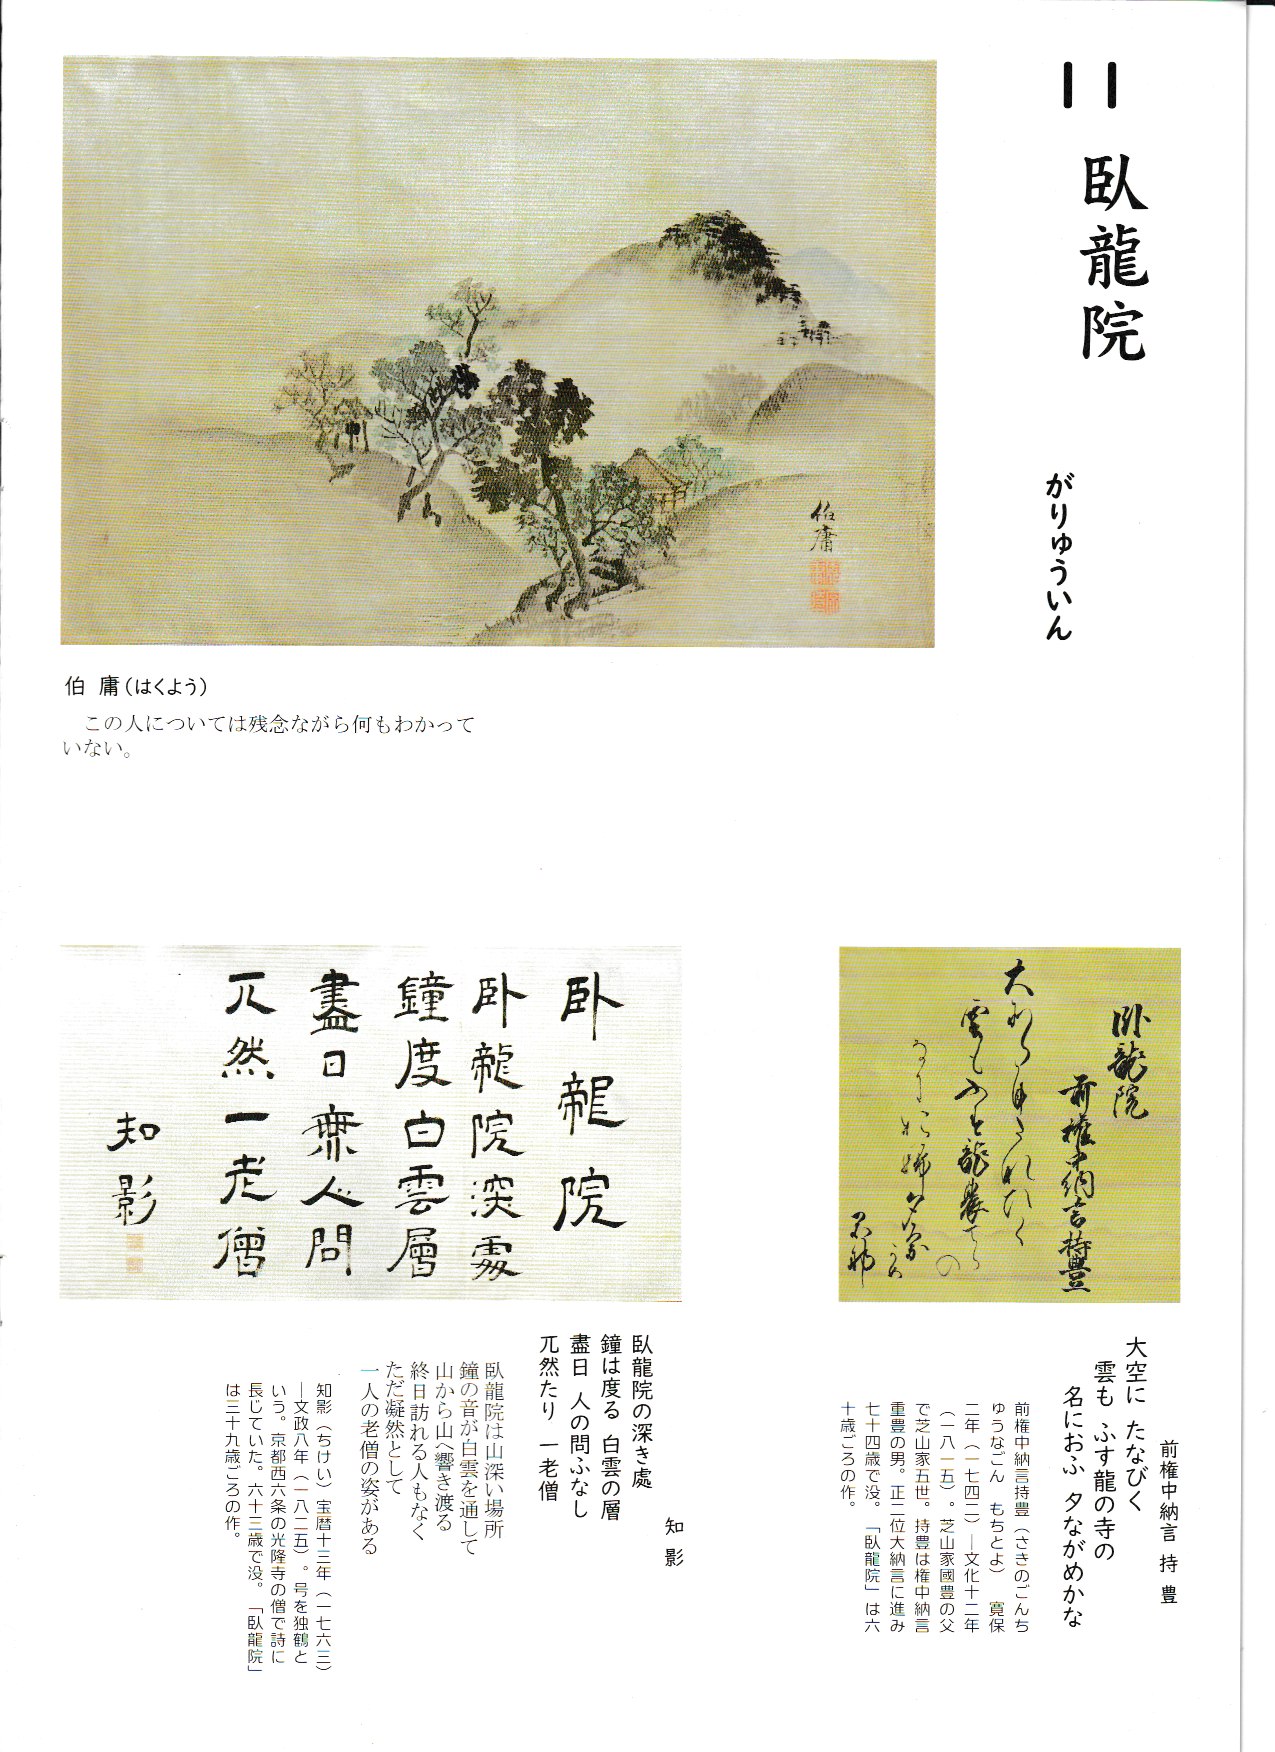 11
臥龍院
がりゅういん
伯庸
伯 庸(はくよう)
この人については残念ながら何もわかって
いない。
臥龍院
前権中納言持豊
前権中納言 持 豊
大空に たなびく
雲も ふす龍の寺の
名におふ 夕ながめかな
前権中納言持豊(さきのごんち
ゆうなごん もちとよ) 寛保
二年(一七四二)―文化十二年
(一八一五)。芝山家國豊の父
で芝山家五世。持豊は権中納言
重豊の男。正二位大納言に進み
七十四歳で没。「臥龍院」は六
十歳ごろの作。
臥龍院
臥龍院深處
鐘度白雲層
盡日無人問
兀然一老僧
知影
知 影
臥龍院の深き處
鐘は度る 白雲の層
盡日 人の問ふなし
兀然たり 一老僧
臥龍院は山深い場所
鐘の音が白雲を通して
山から山へ響き渡る
終日訪れる人もなく
ただ凝然として
一人の老僧の姿がある
知影(ちけい)宝暦十三年(一七六三)
―文政八年(一八二五)。号を独鶴と
いう。京都西六条の光隆寺の僧で詩に
長じていた。六十三歳で没。「臥龍院」
は三十九歳ごろの作。